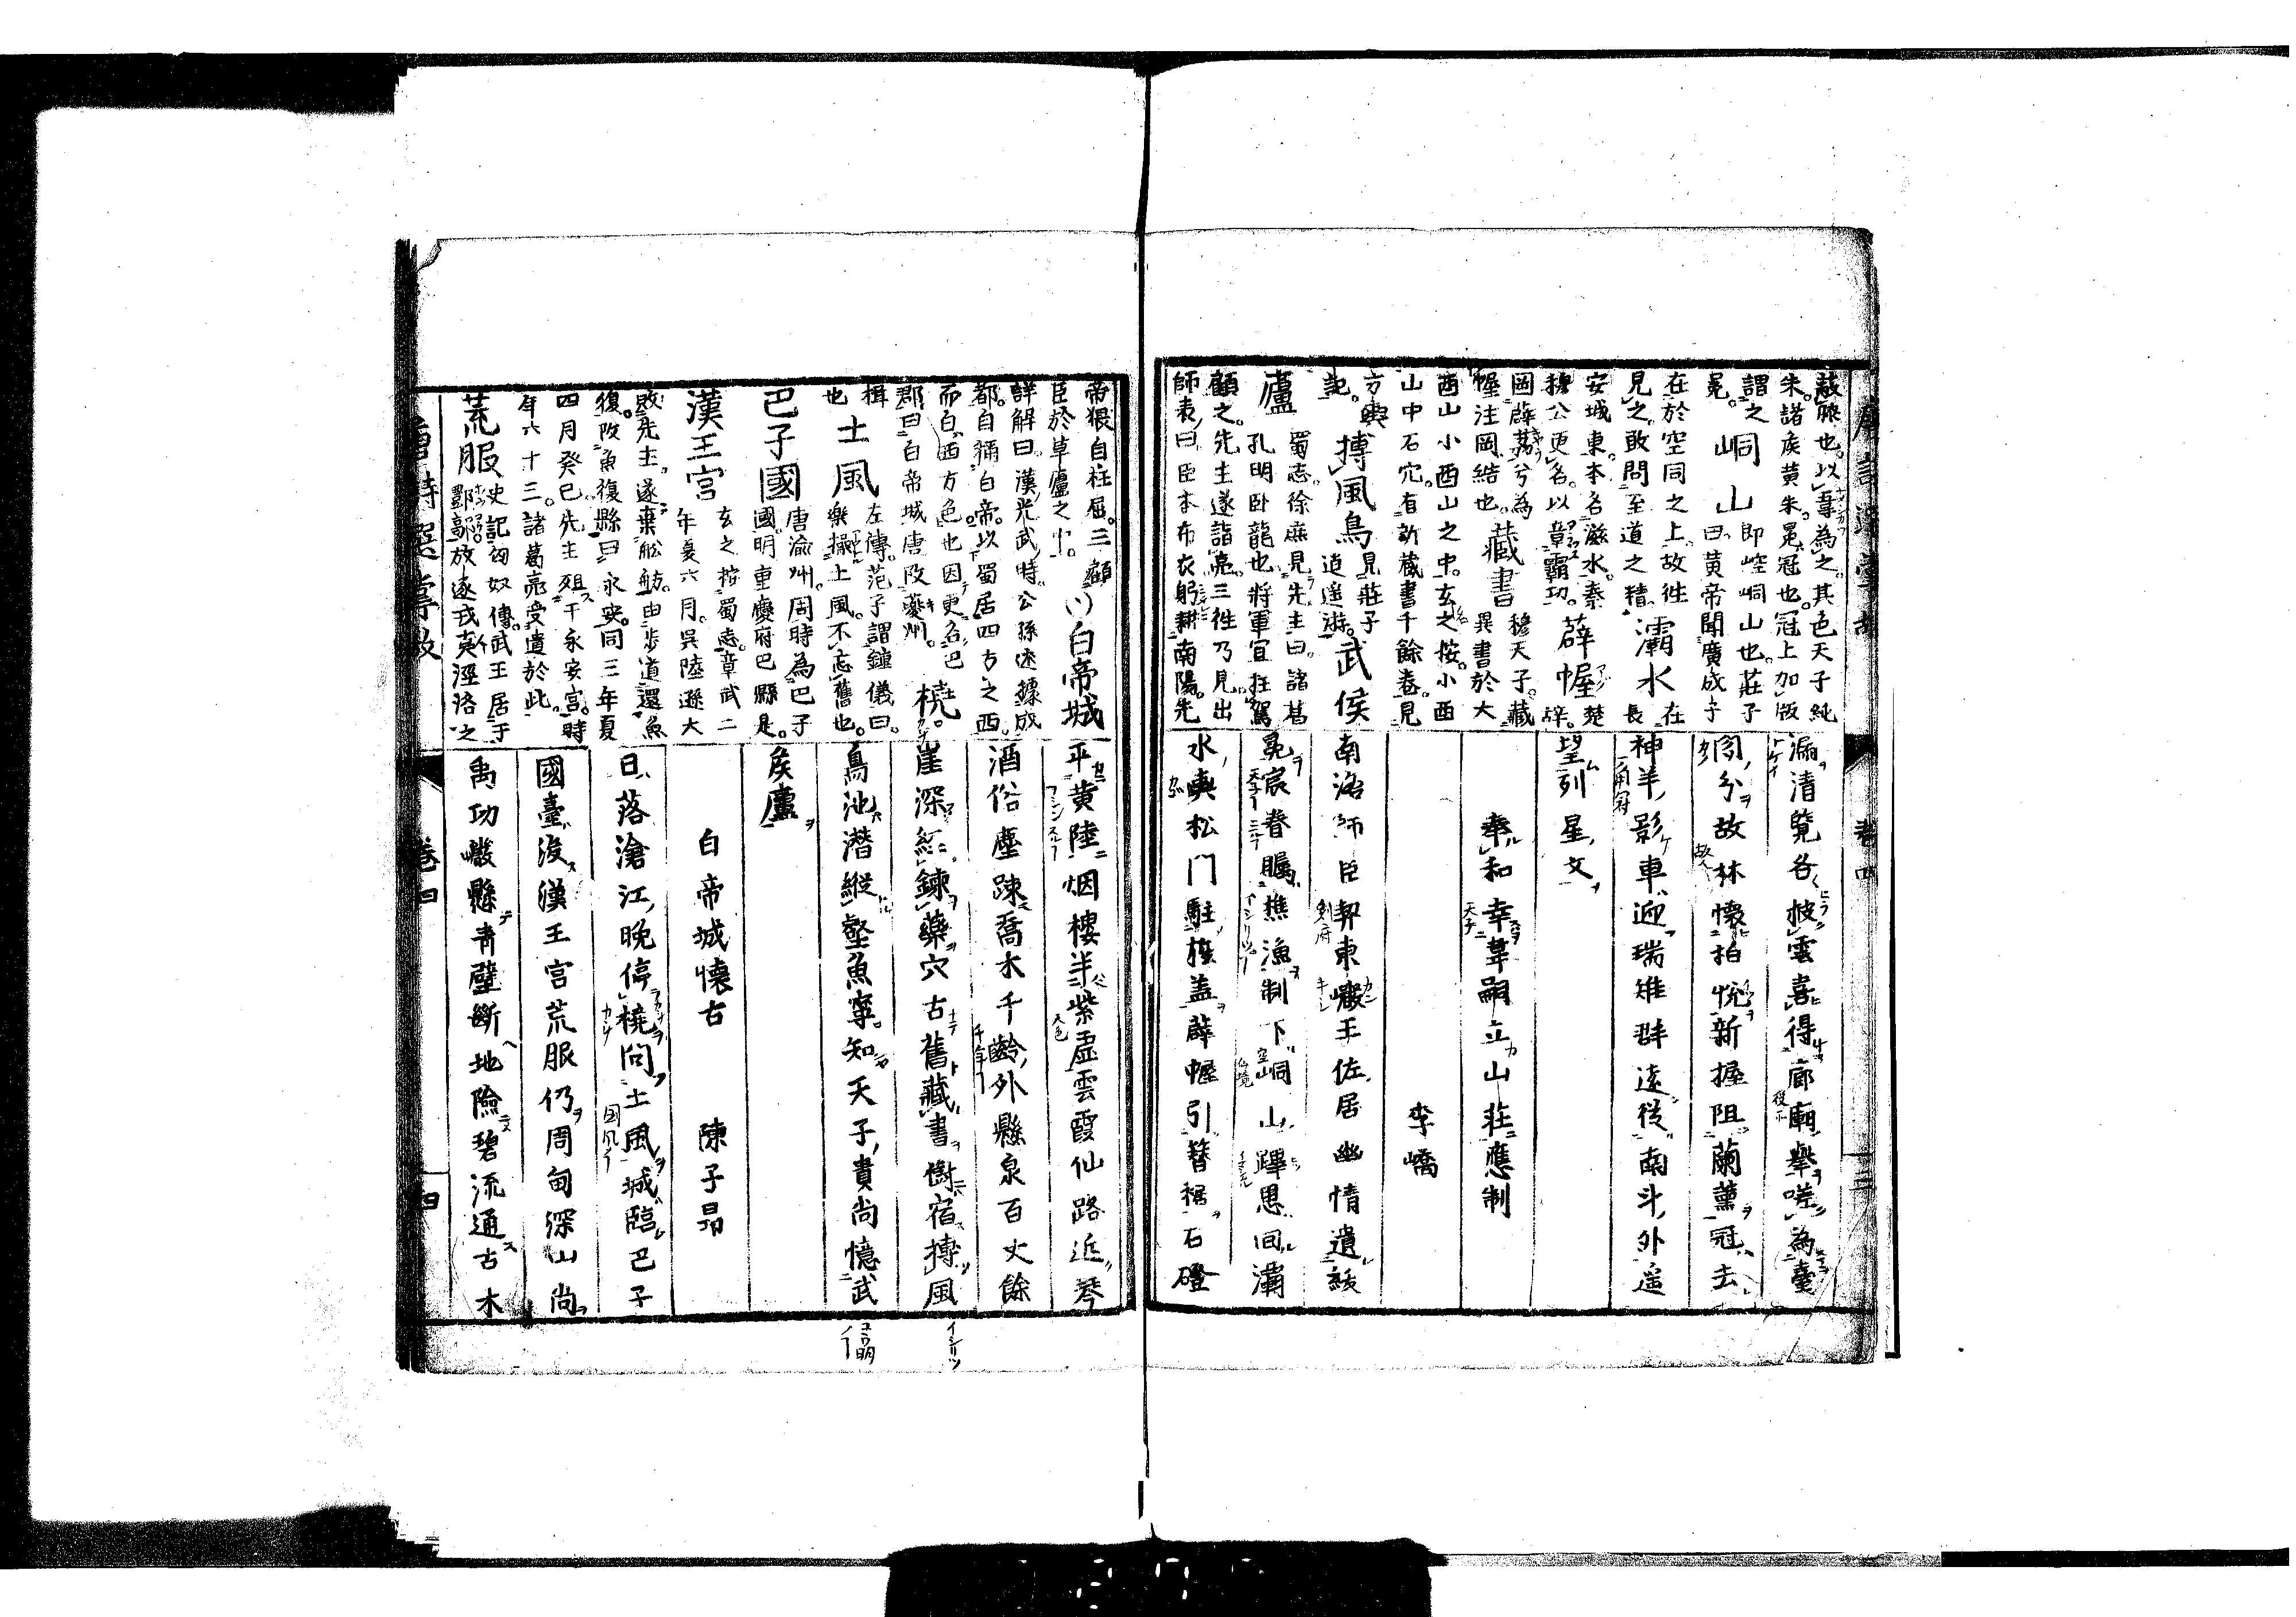 黻㡌也。以韋為之。其色天子純
朱。諸侯黄朱。冕冠也。冠上加版
謂之冕。峒山即崆峒山也。莊子曰。黄帝聞廣成子
在於空同之上。故徃
見之。敢問至道之精。灞水在長
安城東。本名滋水。秦
穆公更名。以章霸功。薜幄楚辞。
罔薜荔兮為
幄注罔結也。藏書穆天子。藏異書於大
酉山小酉山之中。玄之按。小酉
山中石穴。有所藏書千餘卷。見
方輿記。摶風鳥見莊子逍遥遊。武侯
廬蜀志。徐庶見先主曰。諸葛孔明卧龍也。將軍宜枉駕
顧之。先主遂詣亮。三徃乃見。出
師表曰。臣本布衣躬耕南陽。先
漏清蹕各披雲喜得廊廟舉嗟為臺
閣分故林懷柏悦新握阻蘭薰冠去
神羊影車迎瑞雉群遠從南斗外遥
望列星文
奉和幸韋嗣立山莊應制
李嶠
南洛師臣契東巖王佐居幽情遺紱
冕宸眷矚樵漁制下峒山蹕恩回灞
水輿松門駐旌盖薜幄引簪裾石磴
帝猥自枉屈。三顧
臣於草廬之中。白帝城
詳解曰。漢光武時。公孫述據成
都。自稱白帝。以蜀居四方之西
而白西方色也因更名巴
郡曰白帝城唐改夔州。橈
楫也土風左傳。范子謂鍾儀曰。樂操土風。不忘舊也。
巴子國唐渝州。周時為巴子國。明重慶府巴縣是。
漢王宮玄之按蜀志。章武二年夏六月。呉陸遜大
敗先主。遂棄舩舫。由歩道還魚
復。改魚復縣曰永安。同三年夏
四月癸巳。先主殂于永安宮。時
年六十三。諸葛亮受遺於此。
荒服史記匈奴傳。武王居于酆鄗。放逐戎夷涇洛之
平黄陸烟樓半紫虚雲霞仙路近琴
酒俗塵踈喬木千齡外懸泉百丈餘
崖深經錬藥穴古舊藏書樹宿摶風
鳥池潜縱壑魚寧知天子貴尚憶武
侯廬
白帝城懐古
陳子昂
日落滄江晩停橈問土風城臨巴子
國臺没漢王宮荒服仍周甸深山尚
禹功巖懸青壁斷地險碧流通古木
卷四
四